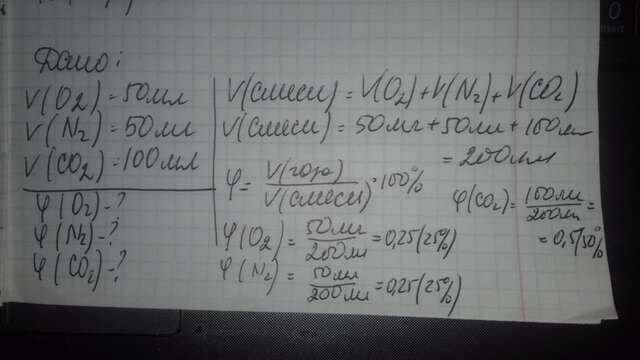 Дано:
V(O₂) = 50 мл
V(N₂) = 50 мл
V(CO₂) = 100 мл
φ(O₂) - ?
φ(N₂) - ?
φ(CO₂) - ?
V(смеси) = V(O₂) + V(N₂) + V(CO₂)
V(смеси) = 50 мл + 50 мл + 100 мл
= 200 мл
φ = V(газа) / V(смеси) · 100%
φ(O₂) = 50 мл / 200 мл = 0,25 (25%)
φ(N₂) = 50 мл / 200 мл = 0,25 (25%)
φ(CO₂) = 100 мл / 200 мл =
= 0,5 (50%)